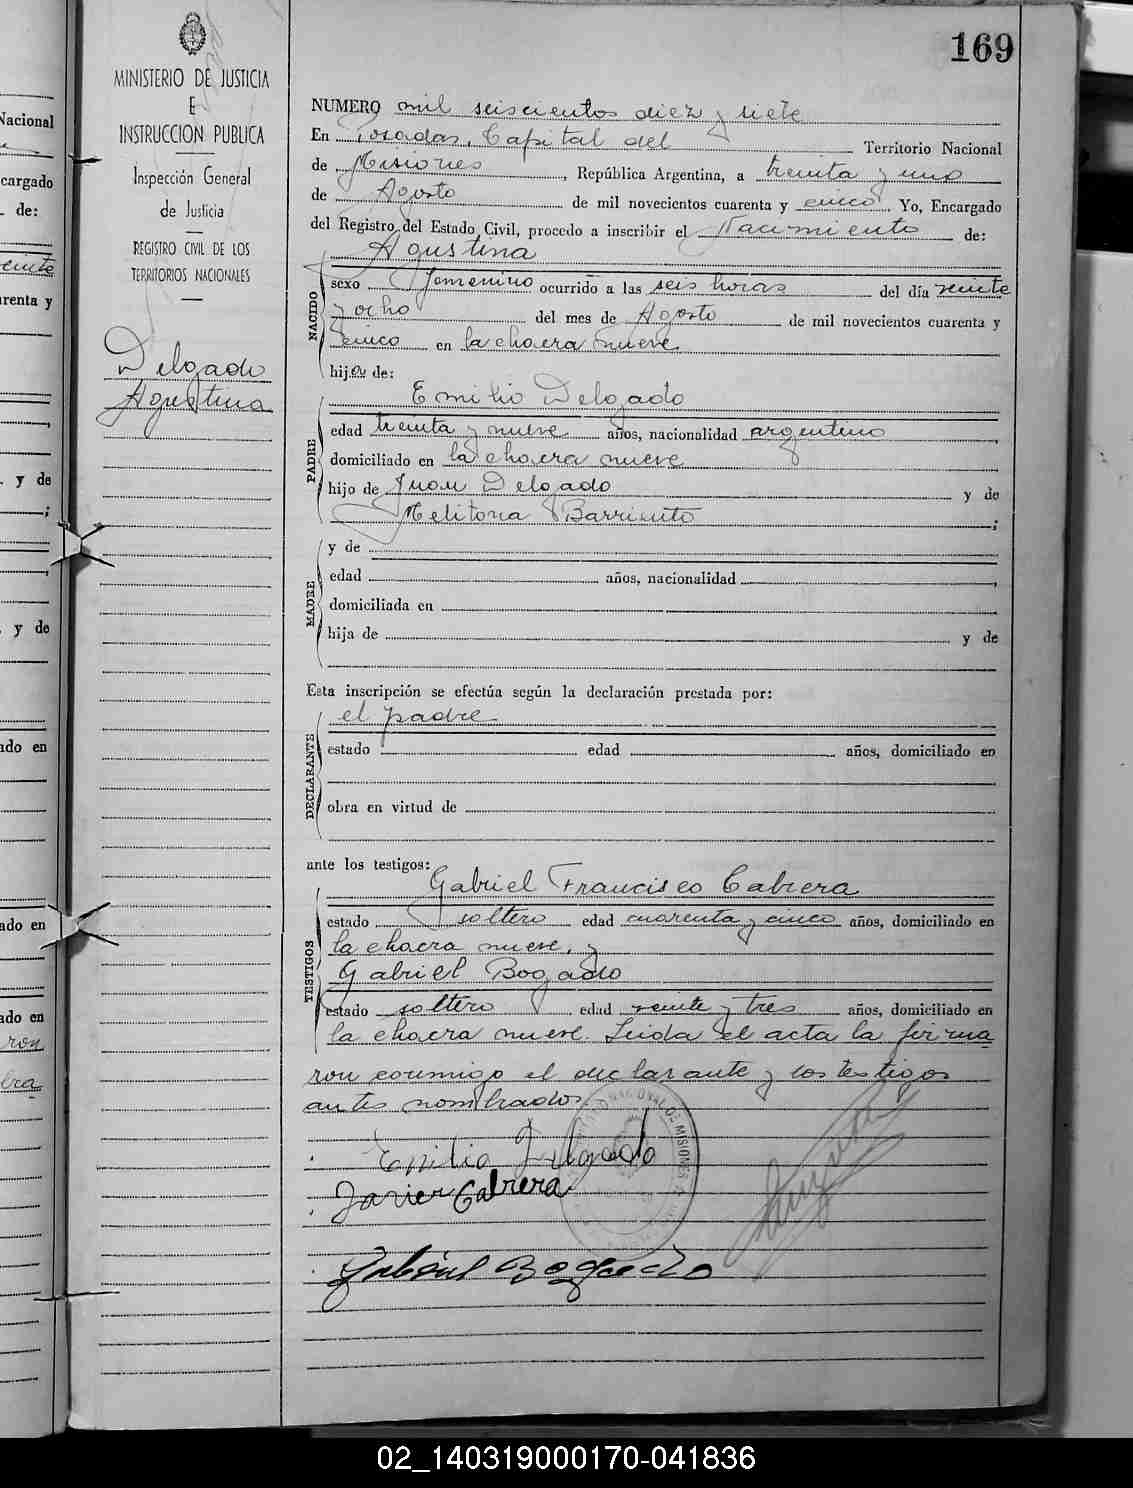 169
MINISTERIO DE JUSTICIA
E
INSTRUCCION PUBLICA
Inspección General
de Justicia
REGISTRO CIVIL DE LOS
TERRITORIOS NACIONALES
Delgado
Agustina
NUMERO mil seiscientos diez y siete
En Posadas, Capital del Territorio Nacional
de Misiones, República Argentina, a treinta y uno
de Agosto de mil novecientos cuarenta y cinco. Yo, Encargado
del Registro del Estado Civil, procedo a inscribir el Nacimiento de:
Agustina
NACIDO
sexo femenino ocurrido a las seis horas del día veinte
y ocho del mes de Agosto de mil novecientos cuarenta y
cinco en la chacra nueve
hija de:
Emilio Delgado
PADRE
edad treinta y nueve años, nacionalidad argentino
domiciliado en la chacra nueve
hijo de Juan Delgado y de
Melitona Barriento;
MADRE
y de
edad años, nacionalidad
domiciliada en
hija de y de
Esta inscripción se efectúa según la declaración prestada por:
el padre
DECLARANTE
estado edad años, domiciliado en
obra en virtud de
ante los testigos:
Gabriel Francisco Cabrera
TESTIGOS
estado soltero edad cuarenta y cinco años, domiciliado en
la chacra nueve, y
Gabriel Bogado
estado soltero edad veinte y tres años, domiciliado en
la chacra nueve. Leida el acta la firma
ron conmigo el declarante y los testigos
antes nombrados.
Emilio Delgado
Javier Cabrera
Gabriel Bogado
Nacional
cargado
de:
renta y
y de
y de
ado en
ado en
ado en
ron
02_140319000170-041836